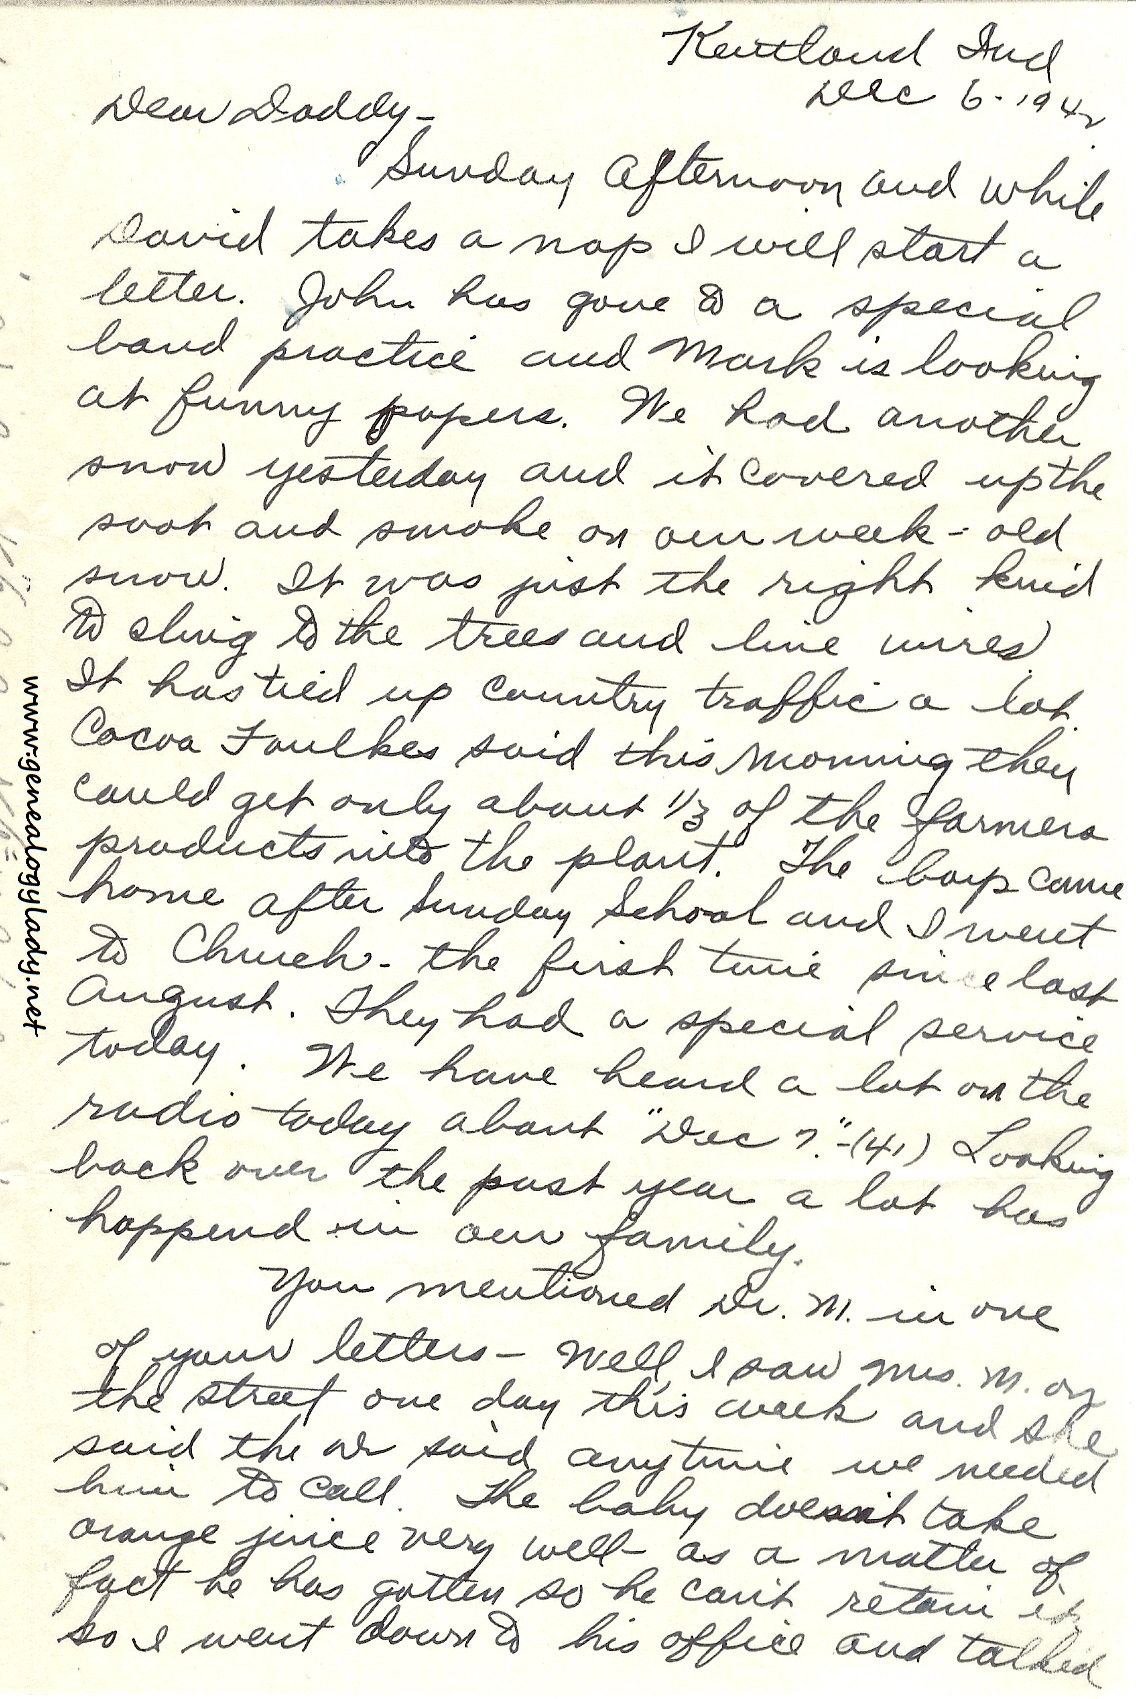 Kentland Ind
Dec 6 - 1942
Dear Daddy -
Sunday afternoon and while
David takes a nap I will start a
letter. John has gone to a special
band practice and Mark is looking
at funny papers. We had another
snow yesterday and it covered up the
soot and smoke on our week-old
snow. It was just the right kind
to cling to the trees and line wires
It has tied up country traffic a lot.
Cocoa Foulkes said this morning they
could get only about 1/3 of the farmers
products into the plant. The boys came
home after Sunday School and I went
to Church - the first time since last
August. They had a special service
today. We have heard a lot on the
radio today about "Dec 7." - (41) Looking
back over the past year a lot has
happend in our family.
You mentioned Dr. M. in one
of your letters - Well, I saw Mrs. M. on
the street one day this week and she
said the Dr said anytime we needed
him to call. The baby doesn't take
orange juice very well - as a matter of
fact he has gotten so he can't retain it
so I went down to his office and talked
www.genealogylady.net